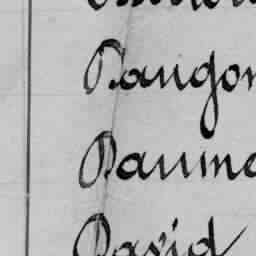 Daugon
Daume
David